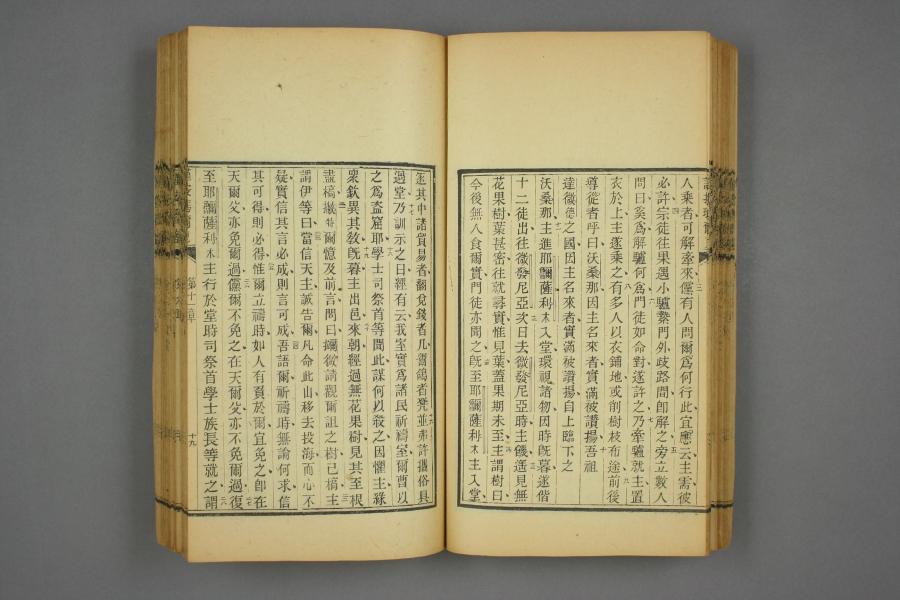 人乘者可解牽來儻有人問爾爲何行此宜應云主需彼
必許宗徒往果遇小驢繫門外歧路間卽解之旁立數人
問曰奚爲解驢何爲門徒如命對遂許之乃牽驢就主置
衣於上主遂乘之有多人以衣鋪地或削樹枝布途前後
尊從者呼曰沃桑那因主名來者實滿被讚揚吾祖
達微德之國因主名來者實滿被讚揚自上臨下之
沃桑那主進耶彌薩利木入堂環視諸物因時旣暮遂偕
十二徒出往微發尼亞次日去微發尼亞時主饑遙見無
花果樹葉甚密往就尋實惟見葉蓋果期未至主謂樹曰
今後無人食爾實門徒亦聞之旣至耶彌薩利木主入堂
逐其中諸貿易者翻兌錢者几鬻鴿者凳並弗許攜俗具
過堂乃訓示之曰經有云我室實爲諸民祈禱室爾曹以
之爲盜窟耶學士司祭首等聞此謀何以殺之因懼主緣
衆欽異其敎旣暮主出邑來朝經過無花果樹見其至根
盡槁撇特爾憶及前言問曰喇微請觀爾詛之樹已槁主
謂伊等曰當信天主誠告爾凡命此山移去投海而心不
疑實信其言必成則言可成吾語爾祈禱時無論何求信
其可得則必得惟爾立禱時如人有負於爾宜免之卽在
天爾父亦免爾過儻爾不免之在天爾父亦不免爾過復
至耶彌薩利木主行於堂時司祭首學士族長等就之謂
第十一章
十九